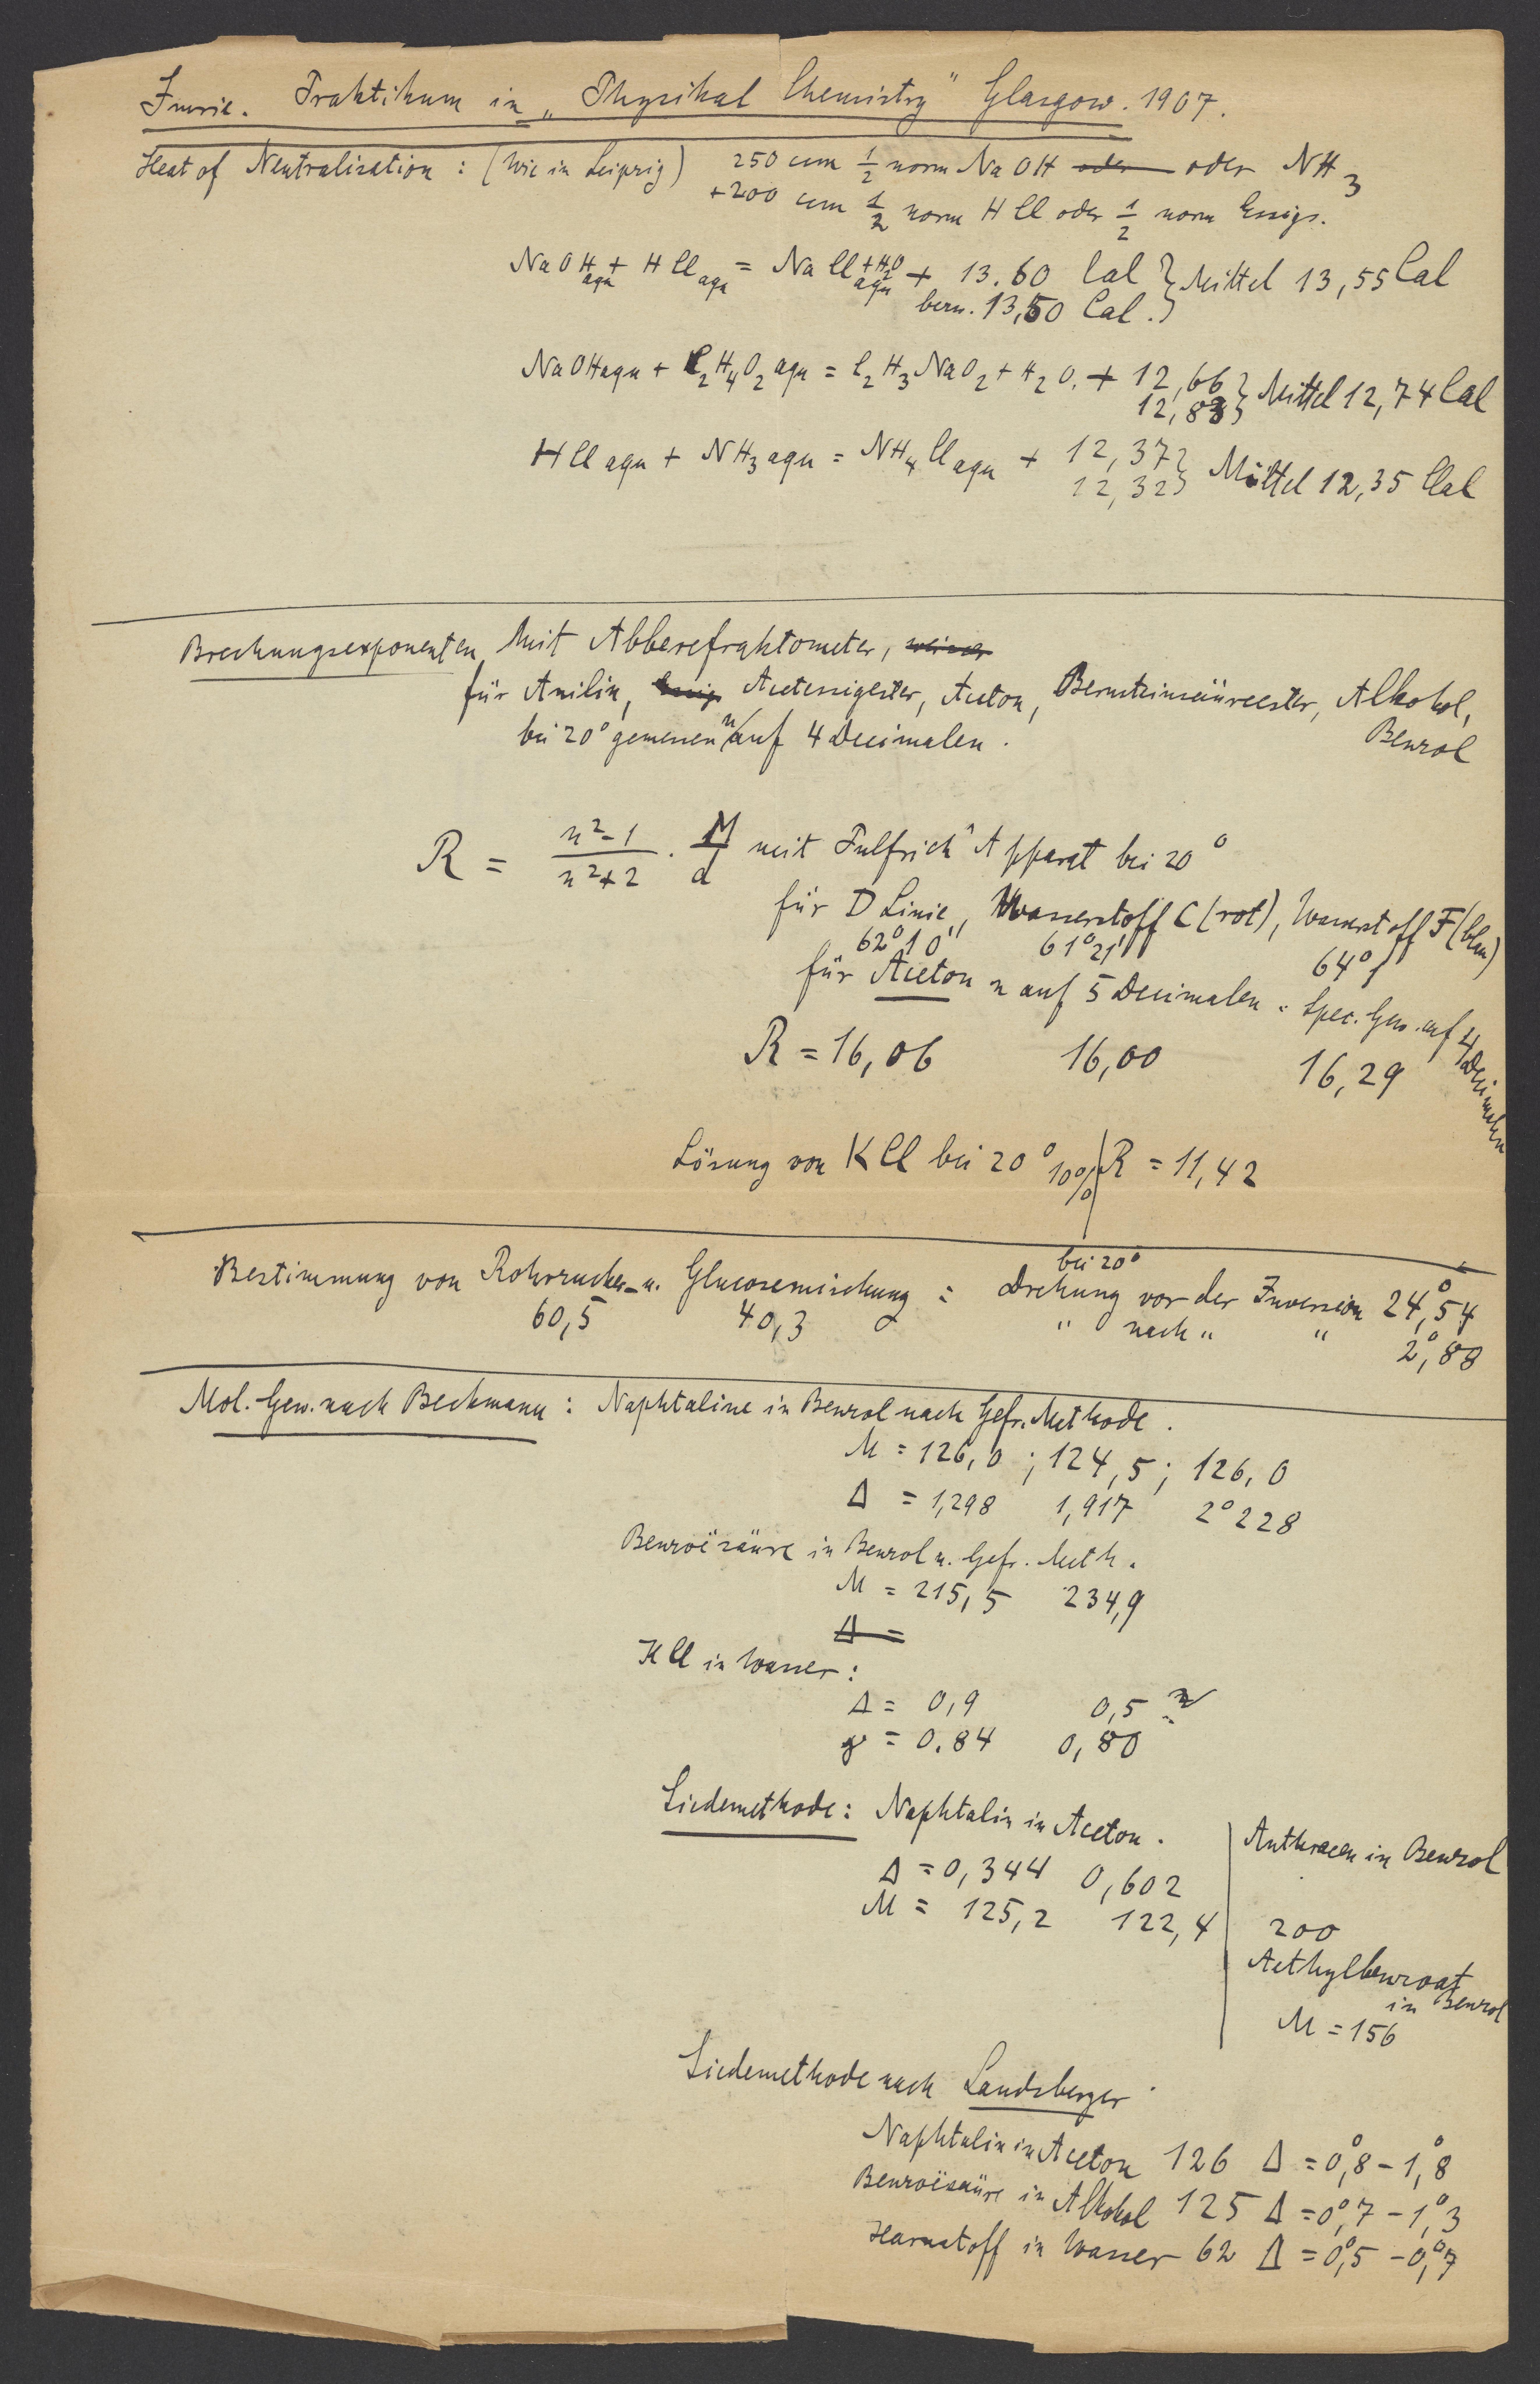 Imrie. Praktikum in „Physikal Chemistry" Glasgow. 1907.
Heat of Neutralisation : (Wie in Leipzig) 250 ccm 1/2 norm NaOH oder oder NH3
+200 ccm 1/2 norm HCl oder 1/2 norm Essigs.
NaOH aqu + HCl aqu = NaCl aqu +H2O + 13.60 Cal } Mittel 13,55 Cal
bezw. 13,50 Cal. }
NaOH aqu + C2H4O2 aqu = C2H3NaO2 + H2O. + 12,66 } Mittel 12,74 Cal
12,83 }
HCl aqu + NH3 aqu = NH4Cl aqu + 12,37 } Mittel 12,35 Cal
12,32 }
Brechungsexponenten Mit Abberefraktometer,
für Anilin, Essig Acetessigester, Aceton, Bernsteinsäureester, Alkohol,
Benzol
bei 20° gemessen n auf 4 Decimalen.
R = n²-1 / n²+2 . M / d mit Pulfrich' Apparat bei 20°
für D Linie, Wasserstoff C (rot), Wasserstoff F (blau)
62°10' 61°21' 64°1'
für Aceton n auf 5 Decimalen. Spec. Gew. auf 4 Decimalen
R = 16,06 16,00 16,29
Lösung von KCl bei 20° 10% R = 11,42
bei 20°
Bestimmung von Rohrzucker- u. Glucosemischung : Drehung vor der Inversion 24°,54
60,5 40,3 " nach " " 2°,88
Mol. Gew. nach Beckmann : Naphtaline in Benzol nach Gefr. Methode.
M = 126,0 ; 124,5 ; 126,0
Δ = 1,298 1,917 2°228
Benzoësäure in Benzol n. Gefr. Meth.
M = 215,5 234,9
Δ =
KCl in Wasser :
Δ = 0,9 0,5
= 0.84 0,80
Siedemethode : Naphtalin in Aceton.
Anthracen in Benzol
Δ = 0,344 0,602
M = 125,2 122,4
200
Aethylbenzoat
in Benzol
M = 156
Siedemethode nach Landsberger.
Naphtalin in Aceton 126 Δ = 0°,8 - 1°,8
Benzoësäure in Alkohol 125 Δ = 0°,7 - 1°,3
Harnstoff in Wasser 62 Δ = 0°,5 - 0°,7